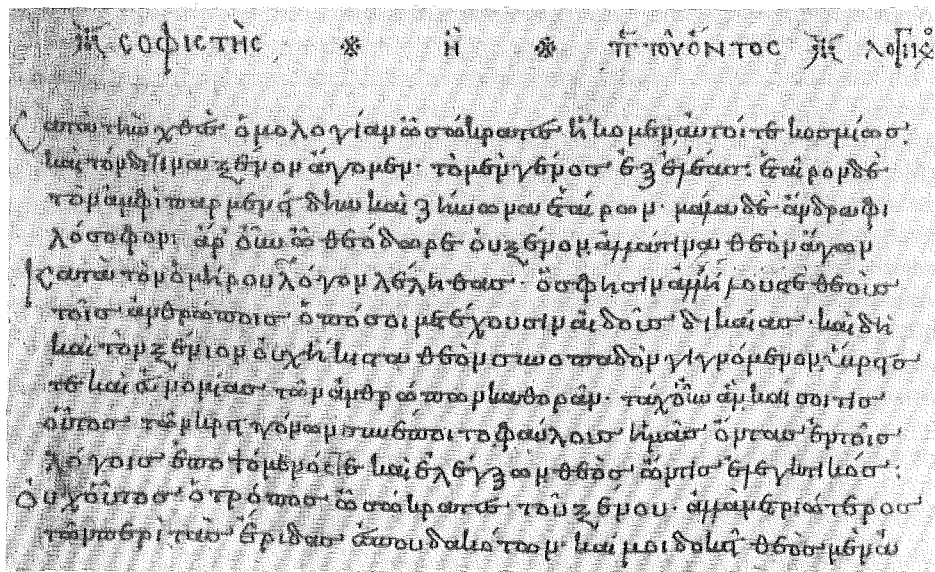 σοφιστὴς ἢ π τοῦ ὄντος λογικὸς
κατὰ τὴν χθὲς ὁμολογίαν ὦ σώκρατες ἥκομεν αὐτοί τε κοσμίως·
καὶ τόνδε τινὰ ξένον ἄγομεν· τὸ μὲν γένος ἐξ ἐλέας· ἑταῖρον δὲ
τῶν ἀμφὶ παρμενίδην καὶ ζήνωνα ἑταίρων· μάλα δὲ ἄνδρα φι
λόσοφον: ἆρ' οὖν ὦ θεόδωρε οὐ ξένον ἀλλά τινα θεὸν ἄγων
κατὰ τὸν ὁμήρου λόγον λέληθας· ὅς φησιν ἄλλους τε θεοὺς
τοῖς ἀνθρώποις ὁπόσοι μετέχουσιν αἰδοῦς δικαίας· καὶ δὴ
καὶ τὸν ξένιον οὐχ ἥκιστα θεὸν συνοπαδὸν γιγνόμενον ὕβρεις
τε καὶ εὐνομίας τῶν ἀνθρώπων καθορᾶν· τάχ' οὖν ἂν καὶ σοί τις
οὗτος τῶν κρειττόνων συνέποιτο φαύλους ἡμᾶς ὄντας ἐν τοῖς
λόγοις ἐποψόμενός τε καὶ ἐλέγξων θεὸς ὤν τις ἐλεγκτικός:
οὐχ οὗτος ὁ τρόπος ὦ σώκρατες τοῦ ξένου· ἀλλὰ μετριώτερος
τῶν περὶ τὰς ἔριδας ἐσπουδακότων· καί μοι δοκεῖ θεὸς μὲν ἀν